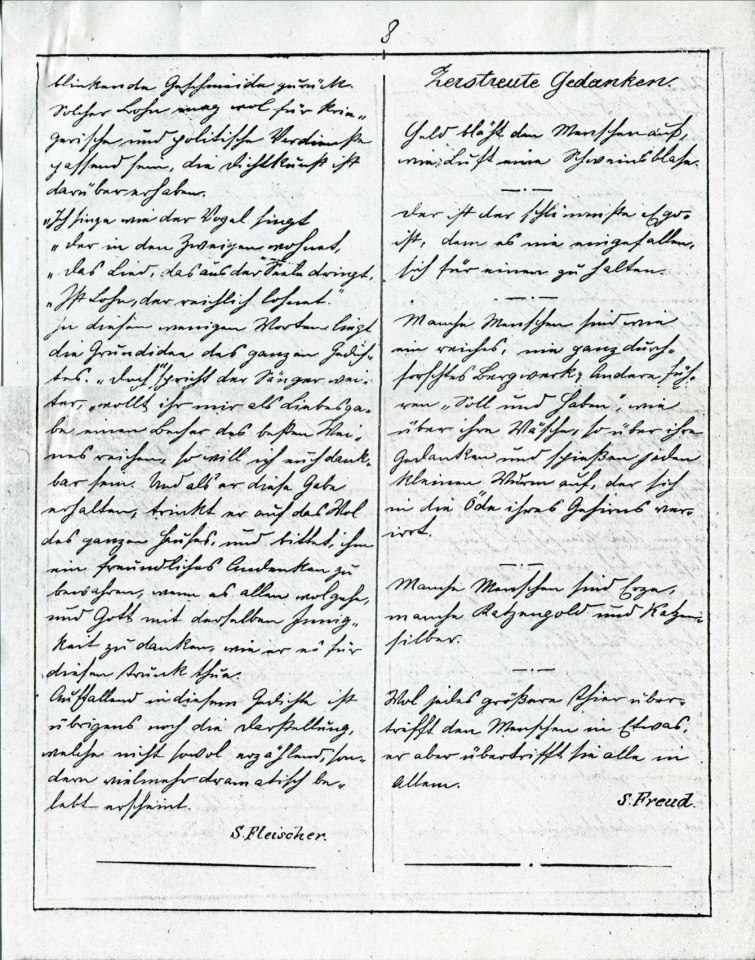 8
blinkende Geschmeide zurück.
Solcher Lohn mag wol für krie-
gerische und politische Verdienste
passend sein, die Dichtkunst ist
darüber erhaben.
„Ich singe wie der Vogel singt
„Der in den Zweigen wohnet,
„Das Lied, das aus der Seele dringt,
„Ist Lohn, der reichlich lohnet.
In diesen wenigen Worten liegt
die Grundidee des ganzen Gedich-
tes. „Doch" spricht der Sänger wei-
ter, „wollt ihr mir als Liebesga-
be einen Becher des besten Wei-
nes reichen, so will ich euch dank-
bar sein. Und als er diese Gabe
erhalten, trinkt er auf das Wol
des ganzen Hauses, und bittet, ihm
ein freundliches Andenken zu
bewahren, wenn es allen wolgehe,
und Gott mit derselben Innig-
keit zu danken, wie er es für
diesen Trunk thue.
Auffallend in diesem Gedichte ist
übrigens noch die Darstellung,
welche nicht sowol erzählend, son-
dern vielmehr dramatisch be-
lebt erscheint.
S. Fleischer.
Zerstreute Gedanken.
Geld bläht den Menschen auf,
wie Luft eine Schweinsblase.
Der ist der schlimmste Ego-
ist, dem es nie eingefallen,
sich für einen zu halten.
Manche Menschen sind wie
ein reiches, nie ganz durch-
forschtes Bergwerk; Andere füh-
ren „Soll und Haben", wie
über ihre Wäsche, so über ihre
Gedanken und spießen jeden
kleinen Wurm auf, der sich
in die Öde ihres Gehirns ver-
irrt.
Manche Menschen sind Erze,
manche Katzengold und Katzen-
silber.
Wol jedes größere Thier über-
trifft den Menschen in Etwas,
er aber übertrifft sie alle in
Allem.
S. Freud.